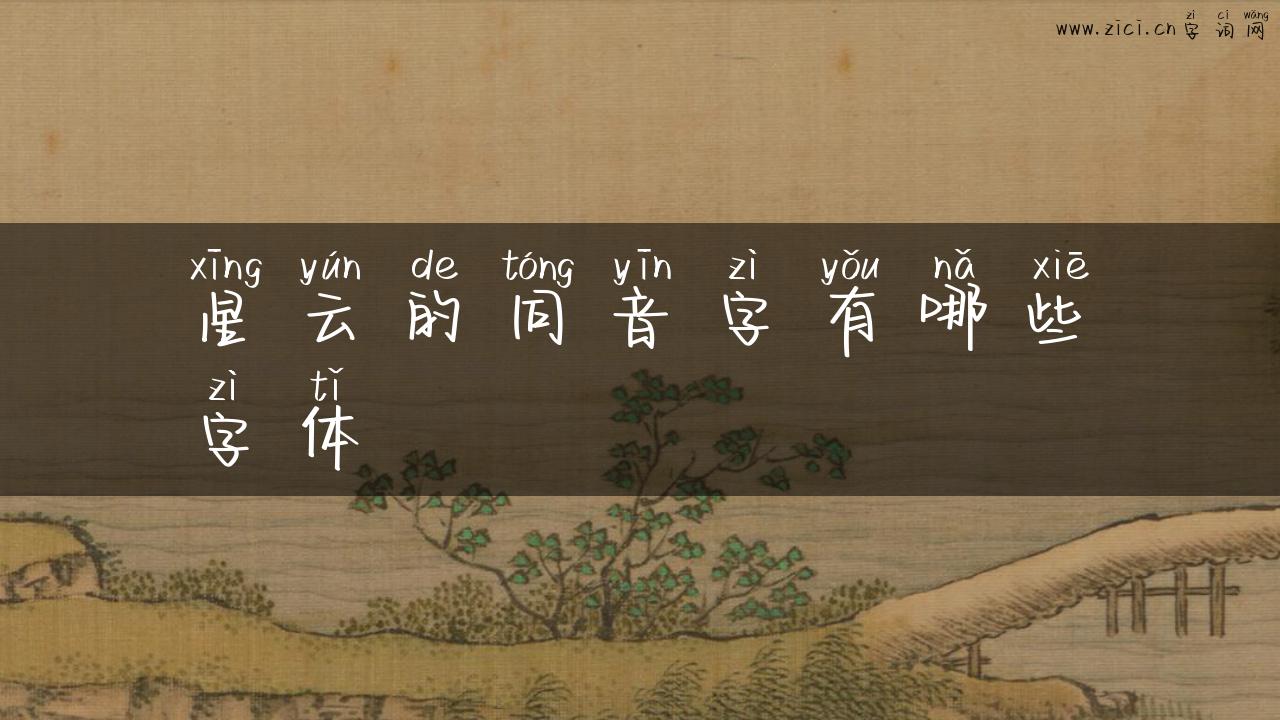 zì cí wǎng
www.zici.cn 字词网
xīng yún de tóng yīn zì yǒu nǎ xiē
星云的同音字有哪些
zì tǐ
字体